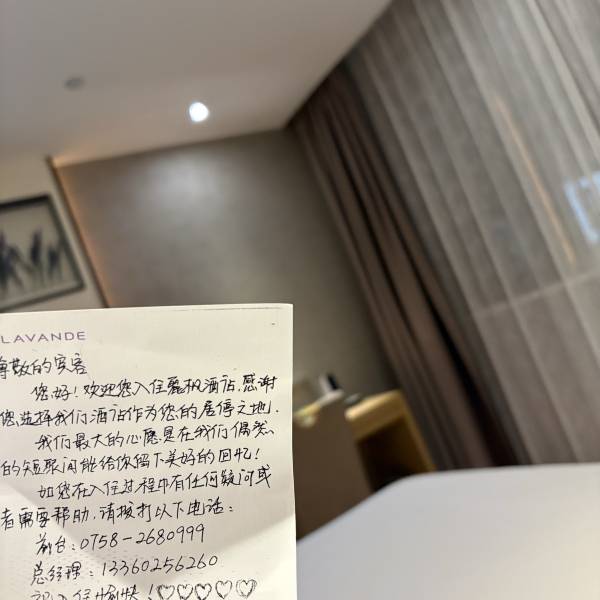 LAVANDE
尊敬的宾客
您好！欢迎您入住麗枫酒店，感谢
您选择我们酒店作为您的居停之地．
我们最大的心愿是在我们偶然
的短聚间能给你留下美好的回忆！
如您在入住过程中有任何疑问或
者需要帮助，请拨打以下电话：
前台：0758-2680999
总经理：13360256260
祝入住愉快！♡♡♡♡♡